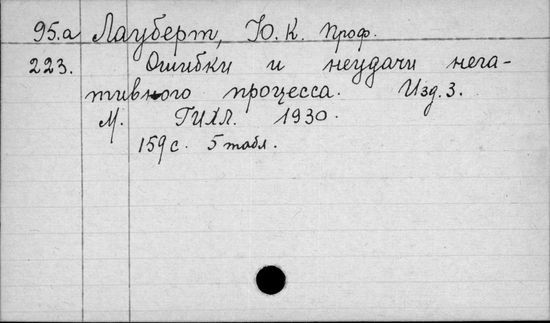 95.а Лауберт, Ю. К. Проф.
223. Ошибки и неудачи нега-
тивного процесса. Изд. 3.
М. ГИХЛ. 1930.
159 с. 5 табл.